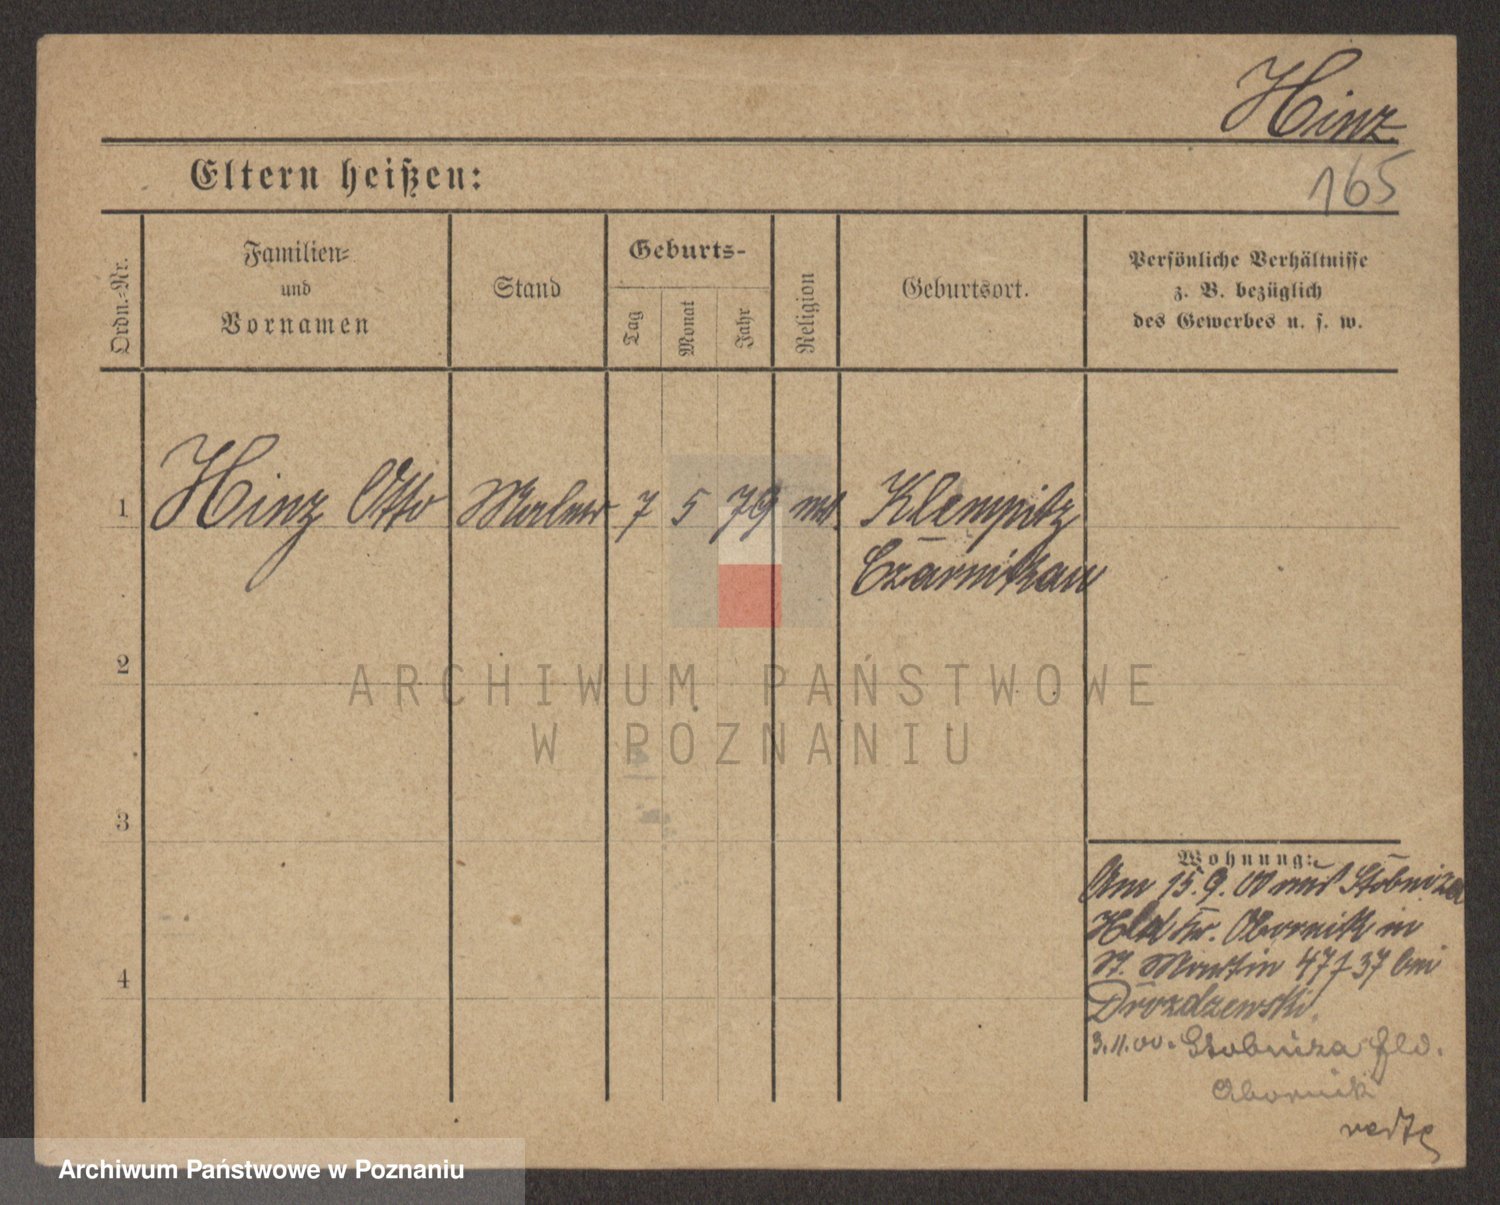 Hinz
165
Eltern heißen:
Ordn.-Nr.
Familien-
und
Vornamen
Stand
Geburts-
Tag
Monat
Jahr
Religion
Geburtsort.
Persönliche Verhältnisse
z. B. bezüglich
des Gewerbes u. s. w.
1
Hinz Otto Maler 7 5 79 Klempitz
Czarnikau
2
ARCHIWUM PAŃSTWOWE
W POZNANIU
3
Wohnung:
Am 15. 9. 00 aus Stobniza
Hld Kr. Obornik in
St. Martin 47 f 37 bei
Drozdzewski.
3.11.00. Stobniza Hld.
Obornik
4
Archiwum Państwowe w Poznaniu